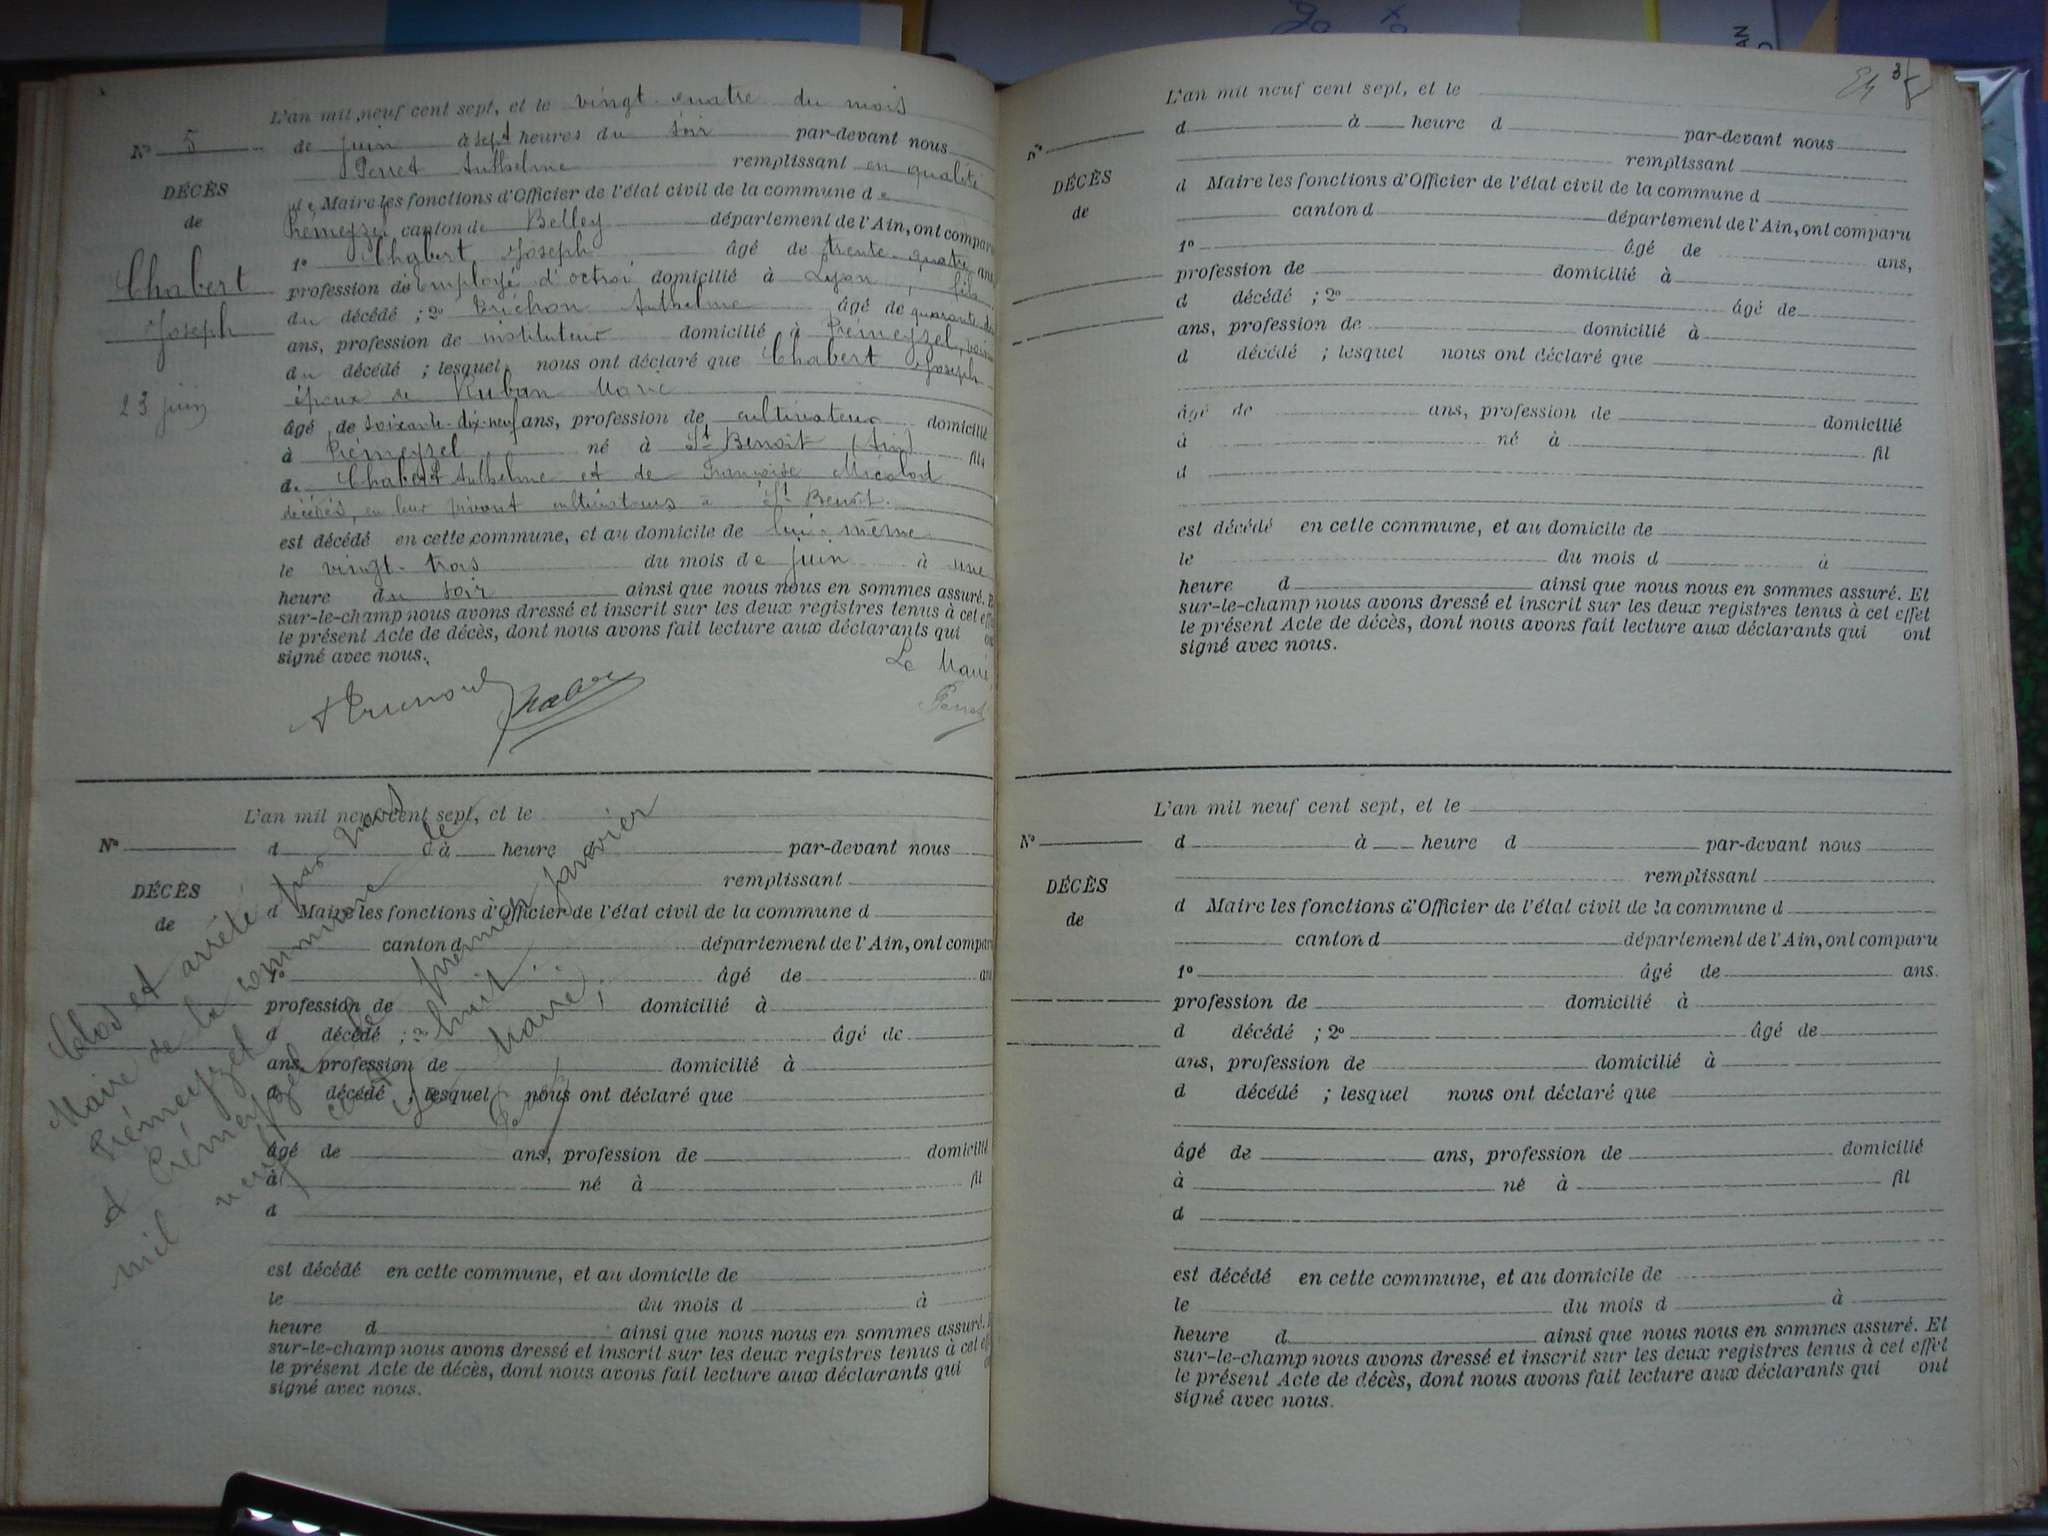 L'an mil neuf cent sept, et le vingt-quatre du mois
N° 5
de juin à sept heures du soir par-devant nous
Perret Anthelme remplissant en qualité
de Maire les fonctions d'Officier de l'état civil de la commune de
Prémeyzel canton de Belley département de l'Ain, ont comparu
1° Chabert Joseph âgé de trente-quatre ans
profession de employé d'octroi domicilié à Lyon, fils
du décédé ; 2° Anthelme âgé de
ans, profession de instituteur domicilié à Prémeyzel, voisin
du décédé ; lesquels nous ont déclaré que Chabert Joseph
époux de Ruban Marie
âgé de soixante-dix-neuf ans, profession de cultivateur domicilié
à Prémeyzel né à St Benoit (Ain) fils
de Chabert Anthelme et de Françoise
décédés, en leur vivant cultivateurs à St Benoit.
est décédé en cette commune, et au domicile de lui-même
le vingt-trois du mois de juin à une
heure du soir ainsi que nous nous en sommes assuré. E
sur-le-champ nous avons dressé et inscrit sur les deux registres tenus à cet effe
le présent Acte de décès, dont nous avons fait lecture aux déclarants qui on
signé avec nous.
Le Maire,
Perret
DÉCÈS
de
Chabert
Joseph
23 juin
L'an mil neuf cent sept, et le
N°
d à heure d par-devant nous
remplissant
d Maire les fonctions d'Officier de l'état civil de la commune d
canton d département de l'Ain, ont compar
1° âgé de an
profession de domicilié à
d décédé ; 2° âgé de
ans, profession de domicilié à
d décédé ; lesquel nous ont déclaré que
âgé de ans, profession de domicilié
à né à fil
d
est décédé en cette commune, et au domicile de
le du mois d à
heure d ainsi que nous nous en sommes assuré.
sur-le-champ nous avons dressé et inscrit sur les deux registres tenus à cet eff
le présent Acte de décès, dont nous avons fait lecture aux déclarants qui
signé avec nous.
DÉCÈS
de
Clos et arrêté par nous
Maire de la commune de
Prémeyzel
A Prémeyzel le premier janvier
mil neuf cent huit.
Le Maire,
L'an mil neuf cent sept, et le
3
N°
d à heure d par-devant nous
remplissant
d Maire les fonctions d'Officier de l'état civil de la commune d
canton d département de l'Ain, ont comparu
1° âgé de ans,
profession de domicilié à
d décédé ; 2° âgé de
ans, profession de domicilié à
d décédé ; lesquel nous ont déclaré que
âgé de ans, profession de domicilié
à né à fil
d
est décédé en cette commune, et au domicile de
le du mois d à
heure d ainsi que nous nous en sommes assuré. Et
sur-le-champ nous avons dressé et inscrit sur les deux registres tenus à cet effet
le présent Acte de décès, dont nous avons fait lecture aux déclarants qui ont
signé avec nous.
DÉCÈS
de
L'an mil neuf cent sept, et le
N°
d à heure d par-devant nous
remplissant
d Maire les fonctions d'Officier de l'état civil de la commune d
canton d département de l'Ain, ont comparu
1° âgé de ans.
profession de domicilié à
d décédé ; 2° âgé de
ans, profession de domicilié à
d décédé ; lesquel nous ont déclaré que
âgé de ans, profession de domicilié
à né à fil
d
est décédé en cette commune, et au domicile de
le du mois d à
heure d ainsi que nous nous en sommes assuré. Et
sur-le-champ nous avons dressé et inscrit sur les deux registres tenus à cet effet
le présent Acte de décès, dont nous avons fait lecture aux déclarants qui ont
signé avec nous.
DÉCÈS
de